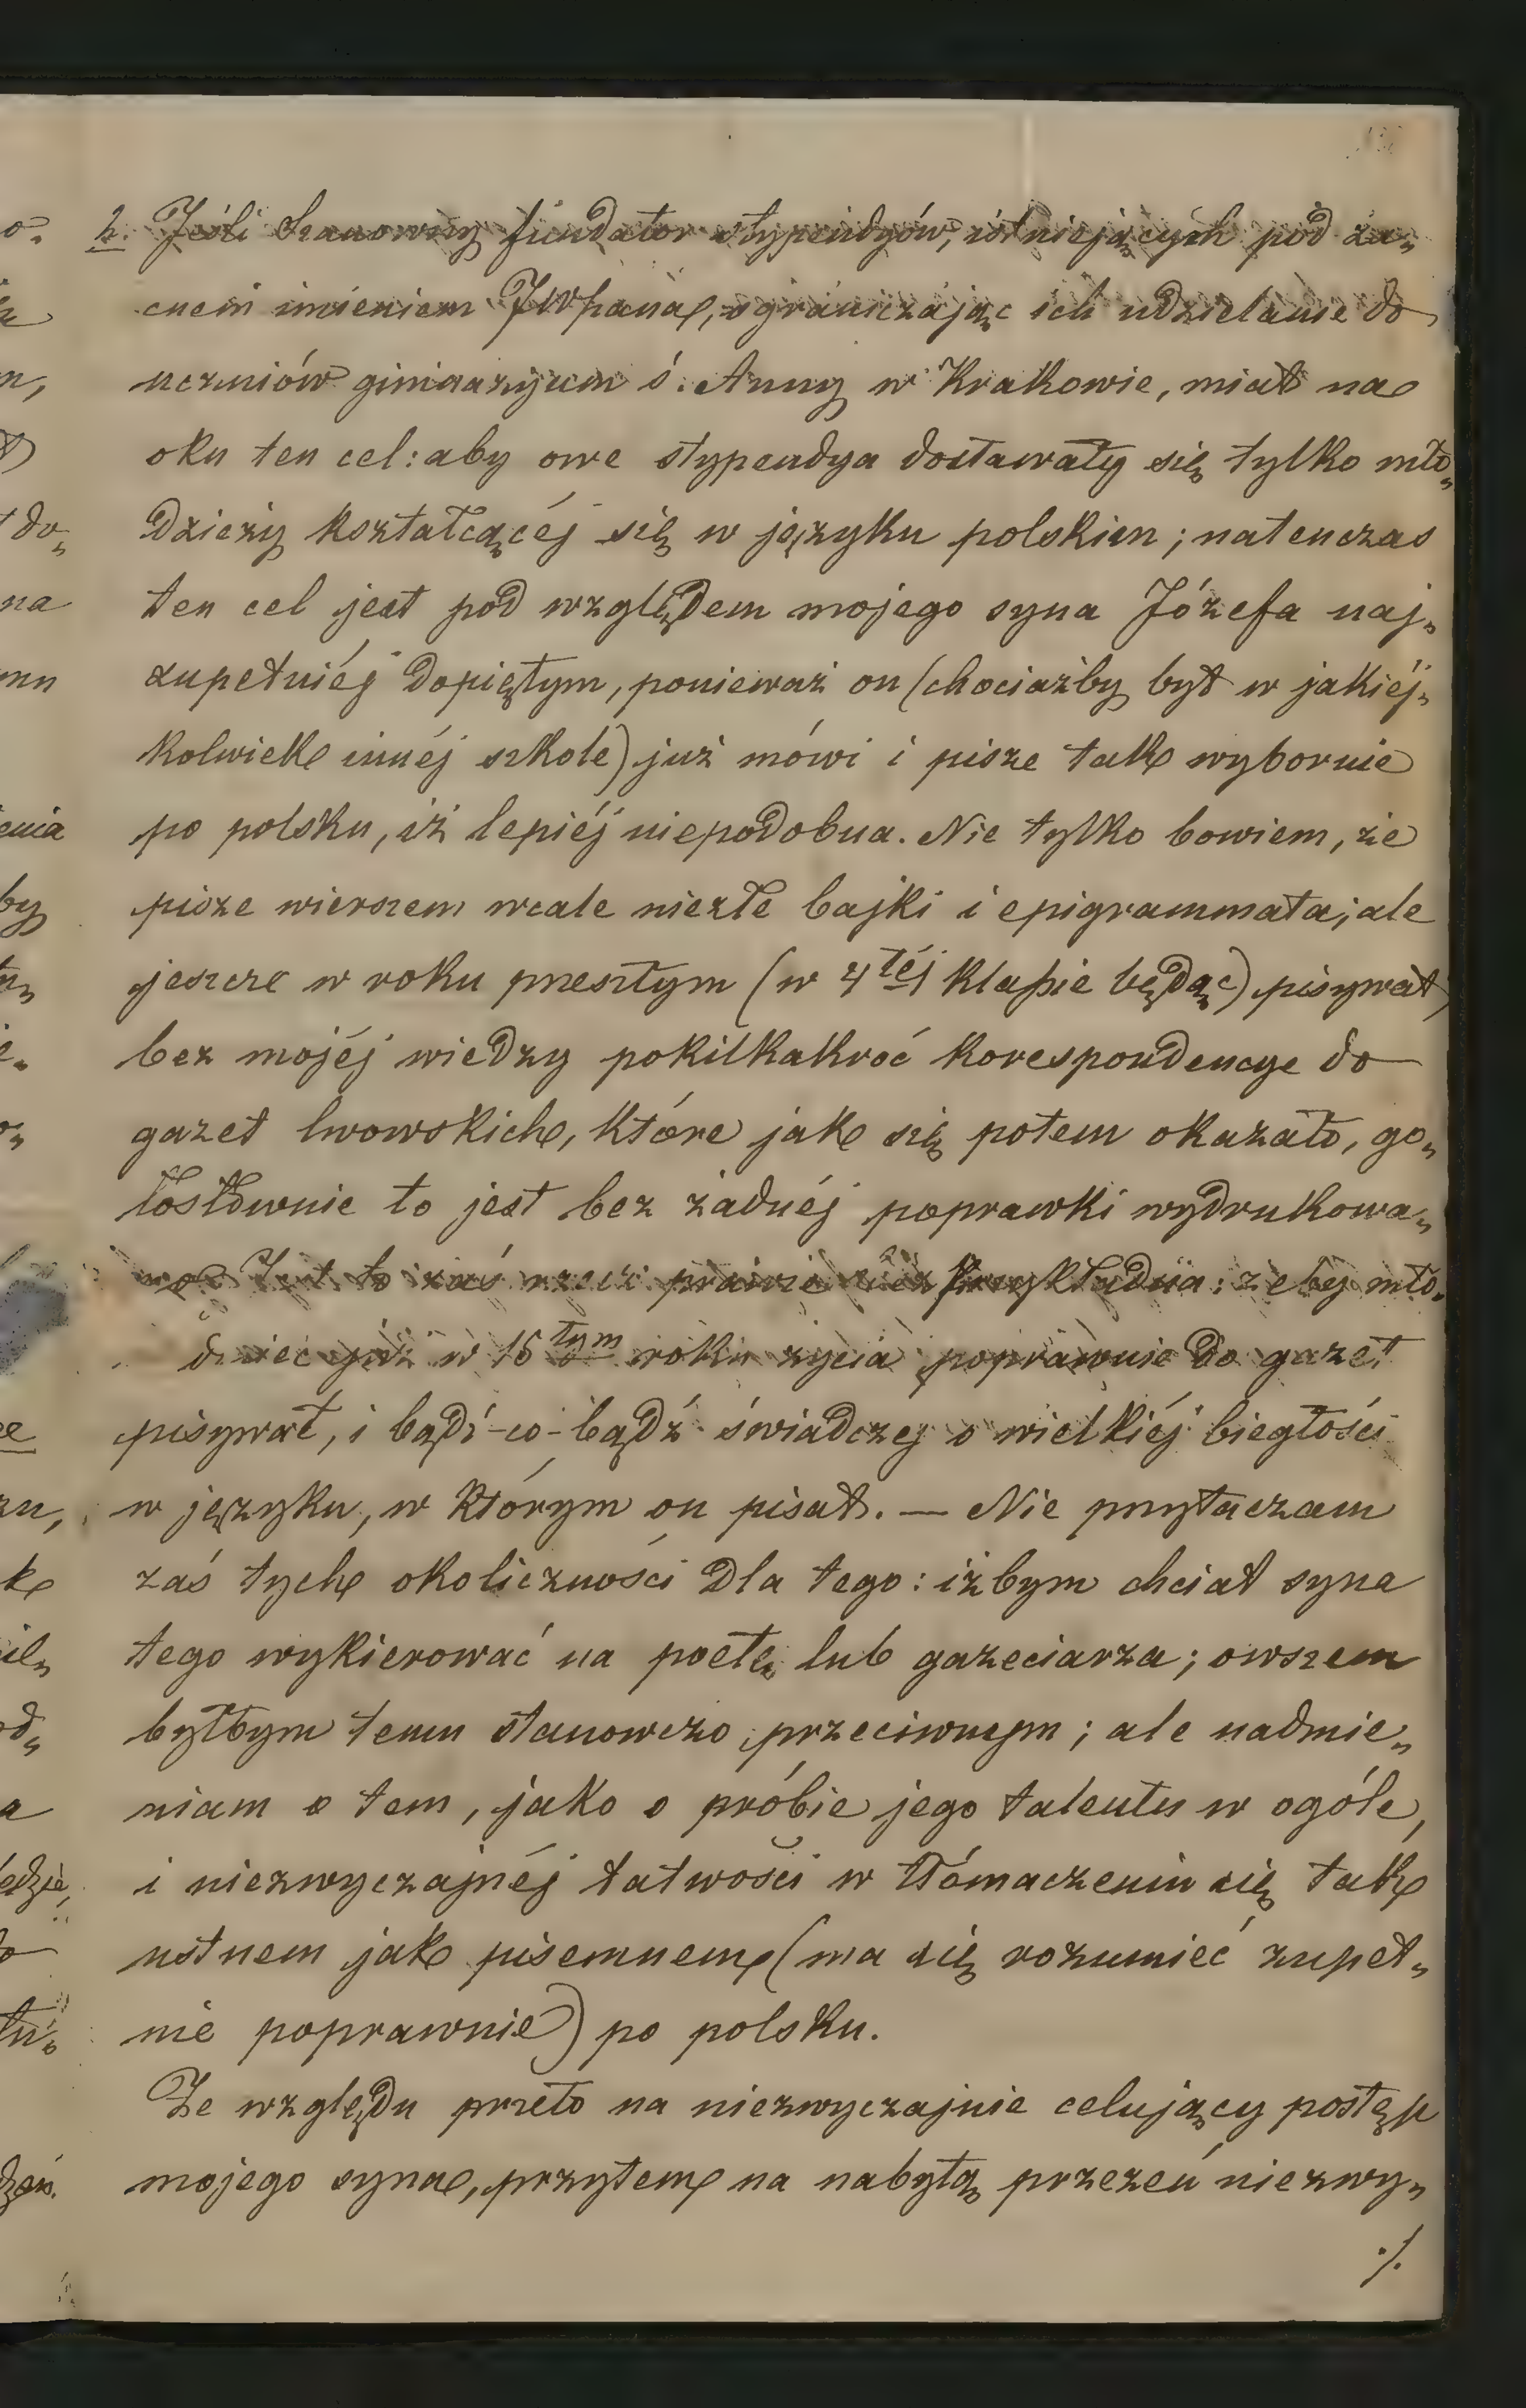 2. Jeśli Szanowny fundator stypendyów, istniejących pod za„
cnem imieniem JWpana, ograniczając ich udzielanie do
uczniów gimnazyum ś. Anny w Krakowie, miał na
oku ten cel: aby owe stypendya dostawały się tylko mło„
dzieży kształcącéj się w języku polskim; natenczas
ten cel jest pod względem mojego syna Józefa naj„
zupełniéj dopiętym, ponieważ on (chociażby był w jakiéj„
kolwiek innéj szkole) już mówi i pisze tak wybornie
po polsku, iż lepiéj niepodobna. Nie tylko bowiem, że
pisze wierszem wcale niezłe bajki i epigrammata; ale
jeszcze w roku przeszłym (w 4téj klassie będąc) pisywał
bez mojéj wiedzy pokilkakroć korespondencye do
gazet lwowskich, które jak się potem okazało, go„
łosłownie to jest bez żadnéj poprawki wydrukowa„
no. Jest to zaś rzecz prawie bez przykładna: żeby mło„
dzieć już w 16tym roku życia poprawnie do gazet
pisywał, i bądź-co-bądź świadczy o wielkiéj biegłości
w języku, w którym on pisał. — Nie przytaczam
zaś tych okoliczności dla tego: iżbym chciał syna
tego wykierować na poetę lub gazeciarza; owszem
byłbym temu stanowczo przeciwnym; ale nadmie„
niam o tem, jako o próbie jego talentu w ogóle,
i niezwyczajnéj łatwości w tłómaczeniu się tak
ustnem jak pisemnem (ma się rozumieć zupeł„
nie poprawnie) po polsku.
Ze względu przeto na niezwyczajnie celujący postęp
mojego syna, przytem na nabytą przezeń niezwy„
./.